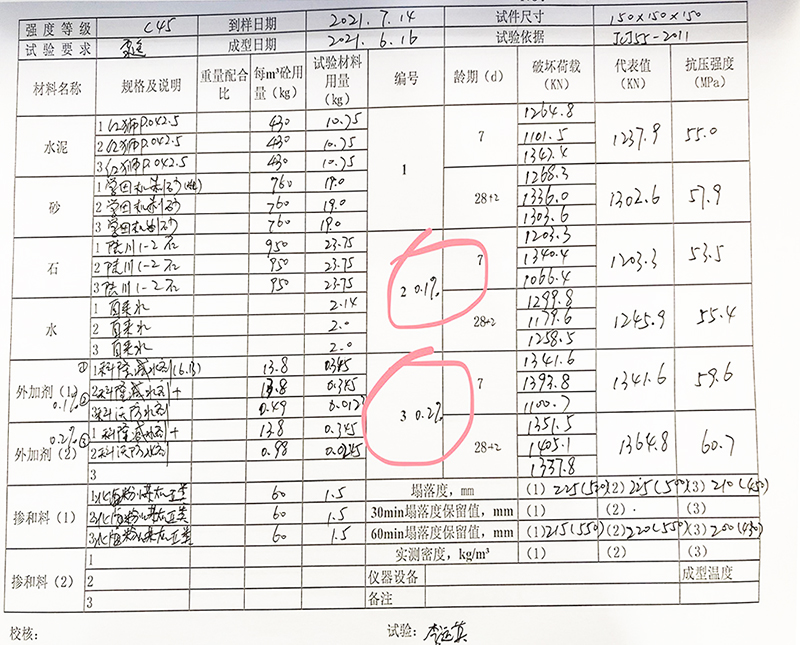 强度等级 C45 到样日期 2021.7.14 试件尺寸 150×150×150
试验要求 成型日期 2021.6.16 试验依据 JGJ55-2011
材料名称 规格及说明 重量配合比 每m³砼用量(kg) 试验材料用量(kg) 编号 龄期(d) 破坏荷载(KN) 代表值(KN) 抗压强度(MPa)
水泥
1 红狮P.O42.5 430 10.75
2 红狮P.O42.5 430 10.75
3 红狮P.O42.5 430 10.75
砂
1 机制砂 760 19.0
2 机制砂 760 19.0
3 机制砂 760 19.0
石
1 陆川1-2石 950 23.75
2 陆川1-2石 950 23.75
3 陆川1-2石 950 23.75
水
1 自来水 2.14
2 自来水 2.0
3 自来水 2.0
外加剂(1) 0.1%
1 科隆减水剂 13.8 0.345
2 科隆减水剂+ 13.8 0.345
3 科沃防水剂 0.49
外加剂(2) 0.2%
1 科隆减水剂+ 13.8 0.345
2 科沃防水剂 0.98 0.0245
3
掺和料(1)
1 60 1.5
2 60 1.5
3 60 1.5
掺和料(2)
1
2
3
1
7 1264.8 1237.9 55.0
1101.5
1347.4
28±2 1268.3 1302.6 57.9
1336.0
1303.6
2 0.1%
7 1203.3 1203.3 53.5
1340.4
1066.4
28±2 1299.8 1245.9 55.4
1179.6
1258.5
3 0.2%
7 1341.6 1341.6 59.6
1393.8
1100.7
28±2 1351.5 1364.8 60.7
1405.1
1337.8
塌落度,mm (1) 225(530) (2) 225(590) (3) 210(450)
30min塌落度保留值,mm (1) (2) (3)
60min塌落度保留值,mm (1) 215(550) (2) 220(550) (3) 200(430)
实测密度,kg/m³ (1) (2) (3)
仪器设备 成型温度
备注
校核: 试验: